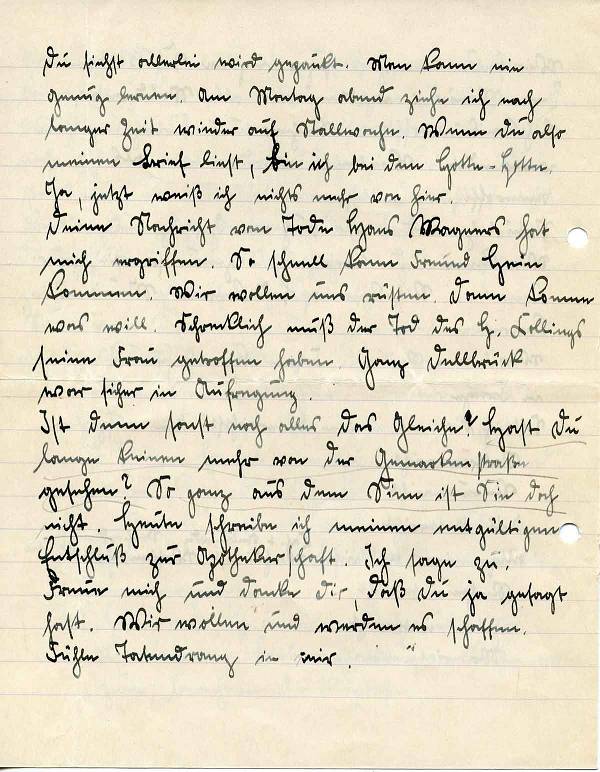 Du siehst allerlei wird gepaukt. Man kann nie
genug lernen. Am Montag abend ziehe ich nach
langer Zeit wieder auf Stallwache. Wenn du also
meinen Brief liest, bin ich bei den Hotte-Hotte.
Ja, jetzt weiß ich nichts mehr von hier.
Deine Nachricht vom Tode Hans Wagners hat
mich ergriffen. So schnell kann Freund Hein
kommen. Wir wollen uns rüsten. Dann komme
was will. Schrecklich muß der Tod des H. Collings
seine Frau getroffen haben. Ganz Dellbrück
war sicher in Aufregung.
Ist denn sonst noch alles das Gleiche? Hast Du
lange keinen mehr von der Gemarkenstraße
gesehen? So ganz aus dem Sinn ist Sie doch
nicht. Heute schreibe ich meinen entgültigen
Entschluß zur Apothekerschaft. Ich sage zu.
Freue mich und danke dir, daß du ja gesagt
hast. Wir wollen und werden es schaffen.
Fühle Tatendrang in mir.